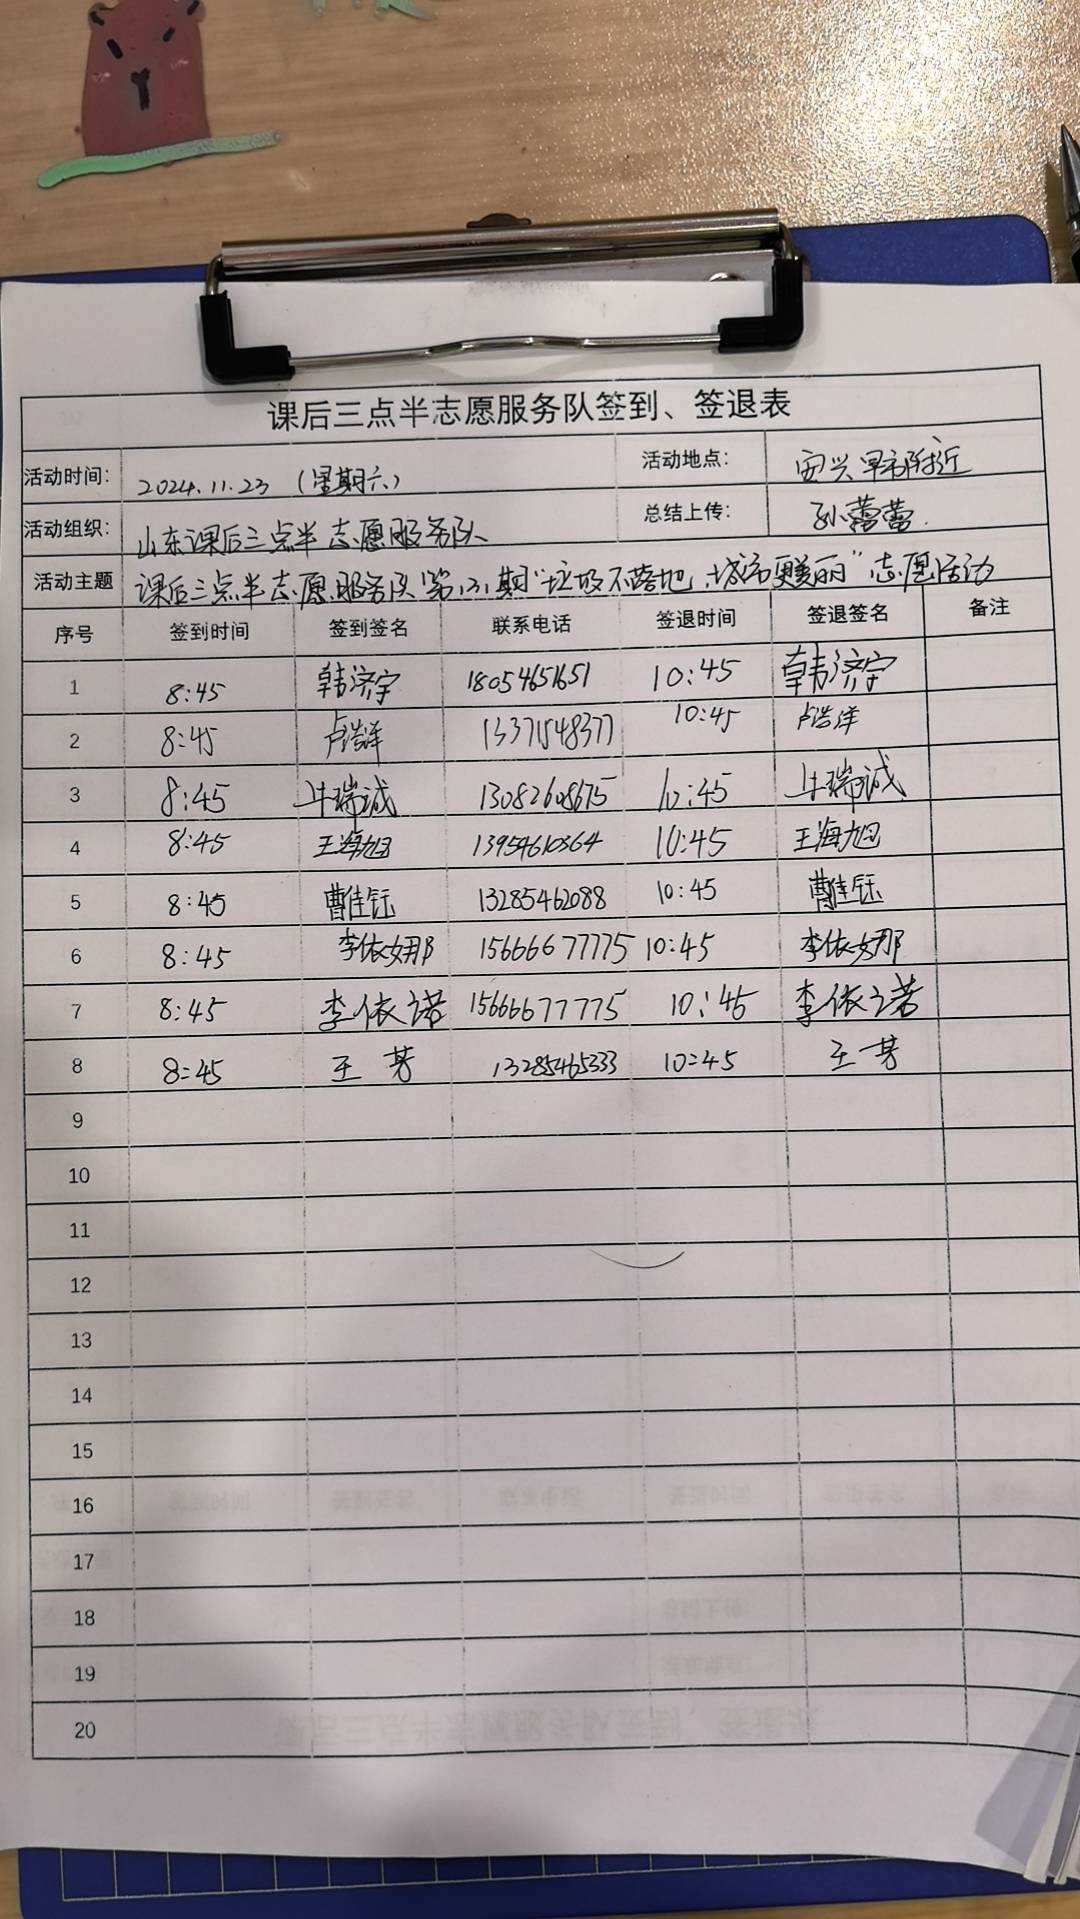 课后三点半志愿服务队签到、签退表
活动时间： 2024.11.23 （星期六） 活动地点： 安兴早市附近
活动组织： 山东课后三点半志愿服务队 总结上传： 孙蕾蕾
活动主题 课后三点半志愿服务队第 期"垃圾不落地,城市更美丽"志愿活动
序号 签到时间 签到签名 联系电话 签退时间 签退签名 备注
1 8:45 韩济宇 18054651651 10:45 韩济宇
2 8:45 卢浩洋 13371548377 10:45 卢浩洋
3 8:45 牛瑞诚 13082608675 10:45 牛瑞诚
4 8:45 王海旭 13954610364 10:45 王海旭
5 8:45 曹佳钰 13285462088 10:45 曹佳钰
6 8:45 李依娜 15666677775 10:45 李依娜
7 8:45 李依诺 15666677775 10:45 李依诺
8 8:45 王芳 13285465333 10:45 王芳
9
10
11
12
13
14
15
16
17
18
19
20